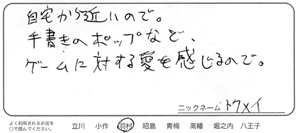 自宅から近いので。
手書きのポップなど、
ゲームに対する愛を感じるので。
ニックネーム トクメイ
よく利用されるお店を
○で囲んでください。
立川 小作 羽村 昭島 青梅 高幡 堀之内 八王子